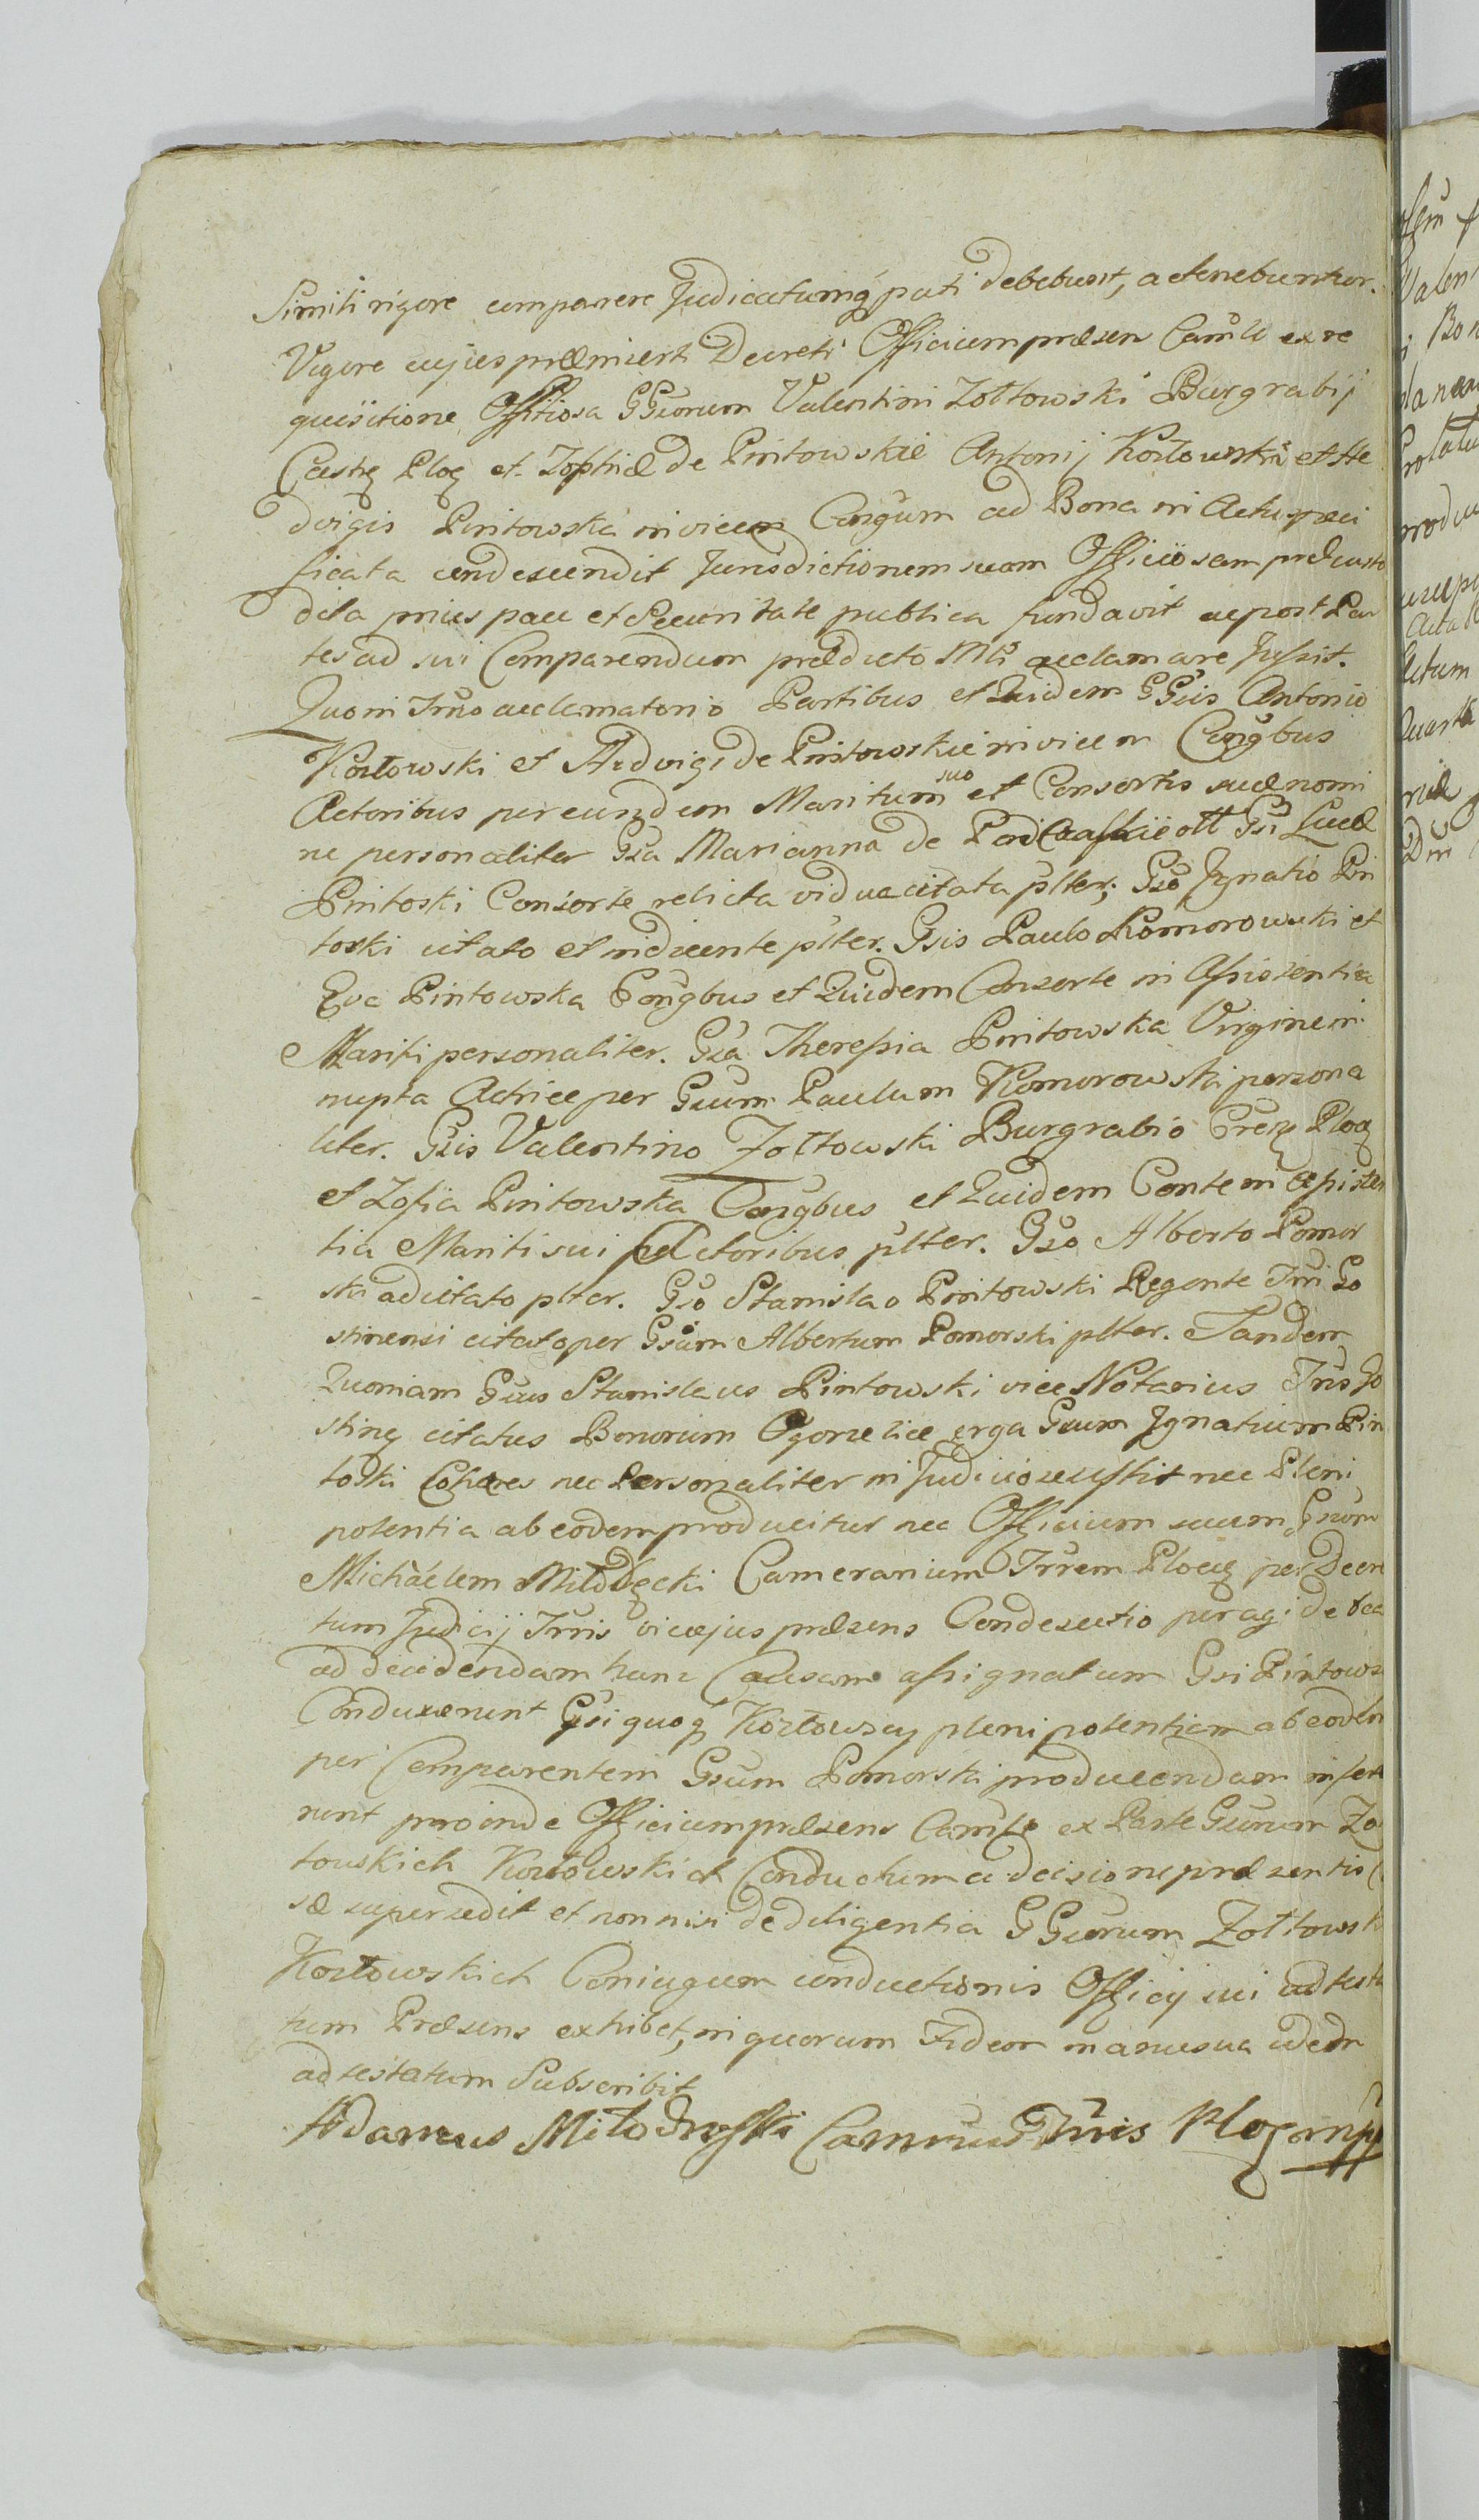 Simili rigore comparere Judicatumq pati debebunt, ac tenebuntur.
Vigore cujus præmissi Decreti Officium præsen Camrle ex re
quisitione Offitiosa GGsorum Valentini Zołtowski Burgrabij
Castrę Plocę et Zophiæ de Pintowskie Antonij Kozłowski et He
dvigis Pintowska invicem Congum ad Bona in Actu speci
ficata condescendit Jurisdictionem suam Officiosam præcusto
dita prius pace et Securitate publica fundavit ac post Par
tes ad sui Comparendum prædicto Mli acclamare Jussit.
Quo in Tmno acclamatorio Partibus et Quidem GGsis Antonio
Kozłowski et Hedvige de Pintowskie invicem Congbus
Actoribus per eundem Maritum suo et Consortis suæ nomi
ne personaliter Gsa Marianna de olt Gsi Lucæ
Pintoski Consorte relicta vidua citata plter; Gso Jgnatio Pin
toski citato et indicente plter. Gsis Paulo Komorowski et
Eva Pintowska Congbus et Quidem Consorte in Assistentia
Mariti personaliter. Gsa Theressia Pintowska Virgine in
nupta Actrice per Gsum Paulum Komorowski persona
liter. Gsis Valentino Zołtowski Burgrabio Crens Plocę
et Zofia Pintowska Congbus et Quidem Conte in assisten
tia Mariti sui Actoribus plter. Gso Alberto Pomor
ski adcitato plter. Gso Stanislao Pintowski Regente Trri Go
stinensi citato per Gsum Albertum Pomorski plter. Tandem
Quoniam Gsus Stanislaus Pintowski vice Notarius Trris Go
stinę citatus Bonorum Ogorzelice erga Gsum Jgnatium Pin
toski Cohæres nec Personaliter in Judicio nec Pleni
potentia ab eodem producitur nec Officium suum Gsum
Michaelem Miłodrocki Camerarium Trrem Plocę per Decre
tum Judicij Trris vi cujus præsens Condescensio peragi debea
ad decidendam hanc Causam assignatum Gsi Pintows
Conduxerunt Gsi quoq Kozłowscy plenipotentiam ab eodem
per Comparentem Gsum Pomorski producendam infere
runt proinde Officium præsens Camrle ex Parte Gsorum Zoł
towskich Kozłowskich Conductum a decisione præsentis C
sæ supersedit et non nisi de diligentia GGsorum Zołtowsk
Kozłowskich Coniugum conductionis Officij sui adtesta
tum Præsens exhibet, in quorum Fidem manu sua idem
adtestatum Subscribit
Adamus Miłodroski Camrius Trris Ploc mp